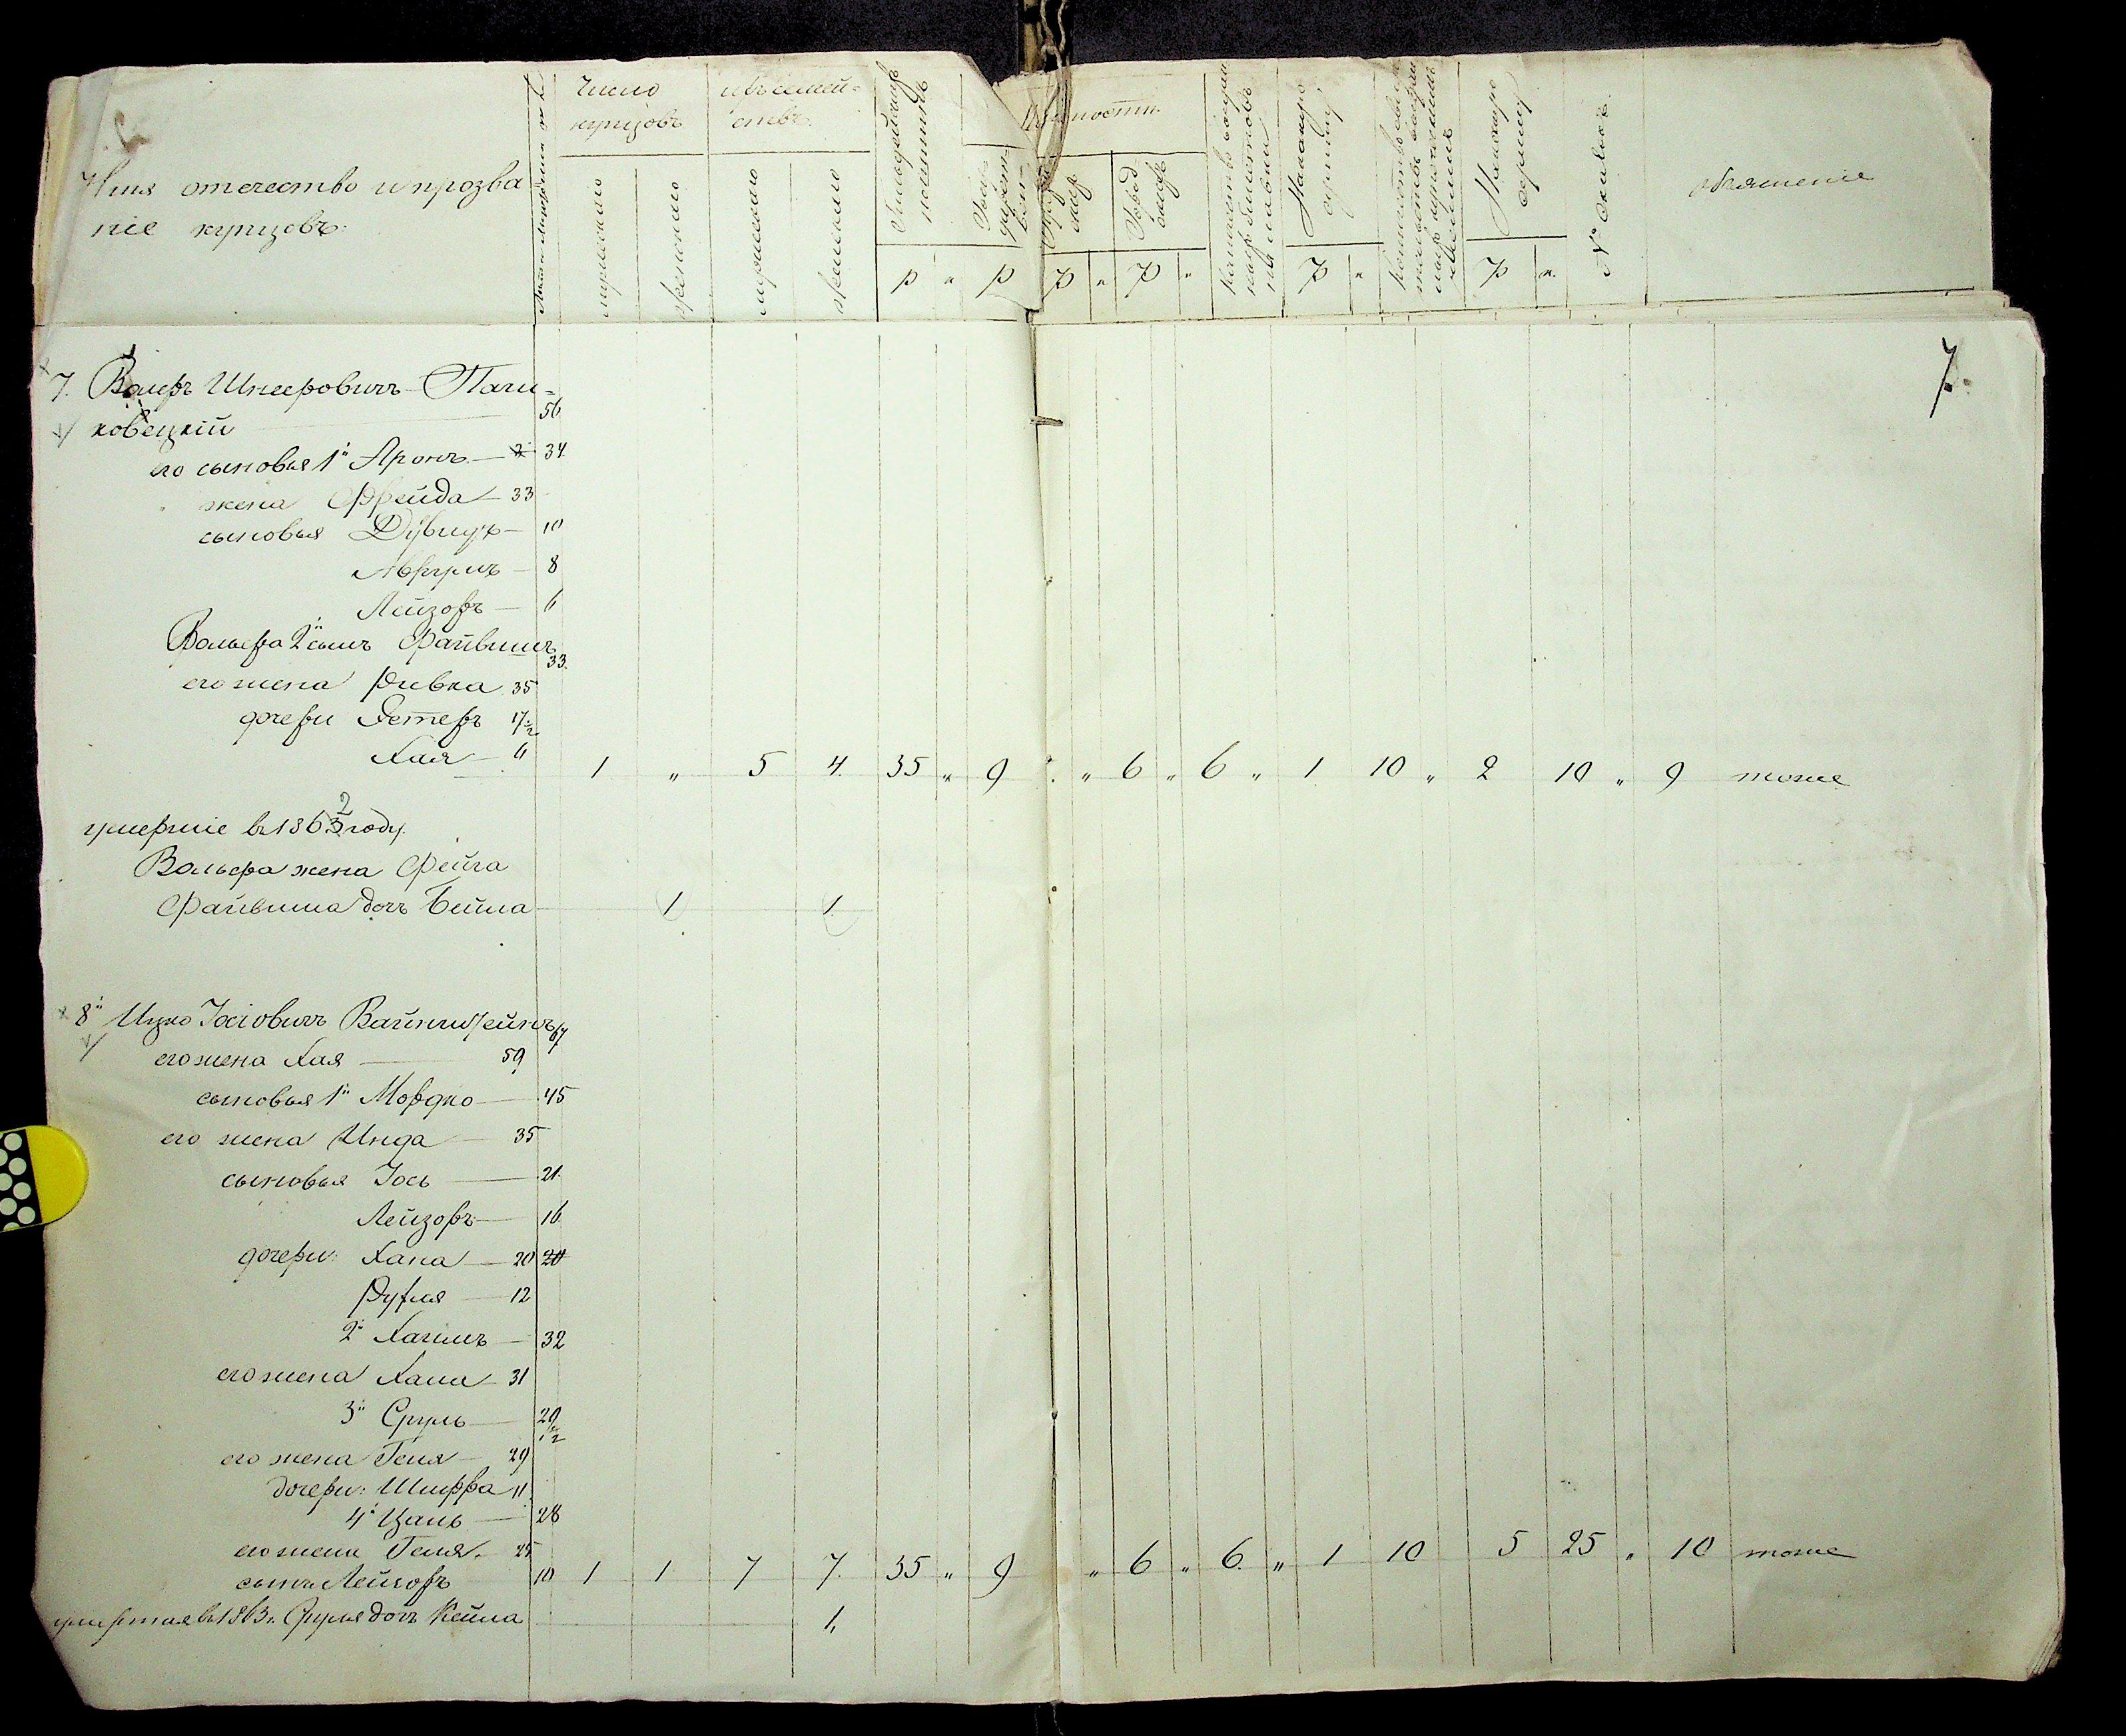 Имя отечество и прозва
ніе купцовъ:
Число
купцовъ
ихъ семей-
ствъ
мужескаго
женскаго
мужескаго
женскаго
Гильдейскихъ
пошлинъ
р
"
р
повинности
Город
скихъ
р
"
р
"
р
"
р
к.
№ окладъ
объясненіе
7.
7. Вольфъ Шнееровичъ Пали-
ковецкій 56
его сыновья 1й Аронъ — 34
жена Фрейда — 33
сыновья Дувидъ — 10
Аврумъ — 8
Лейзоръ — 6
Вольфа 2й сынъ Файвишъ 33.
его жена Ривка 35
дочери Эстеръ 17 1/2
Хая — 6
1 " 5 4. 35 " 9 " 6 " 6 " 1 10 " 2 10 " 9 тоже
умершіе въ 1862 году.
Вольфа жена Фейга
Файвиша дочь Бейла 1 1
8й Ицко Іосіовичъ Вайнштейнъ 67
его жена Хая — 59
сыновья 1й Мордко — 45
его жена Инда — 35
сыновья Іось — 21.
Лейзоръ — 16
дочери: Хана — 20 20
Рухля — 12
2й Хаимъ — 32
его жена Хана 31
3й Сруль — 29 1/2
его жена Геня — 29
дочери: Шифра 11
4й Цаль — 28
его жена Геня. 25
сынъ Лейзоръ 10 1 1 7 7. 35 " 9 " 6 " 6. " 1 10 5 25 " 10 тоже
умершая въ 1863 г. Сруля дочь Кейла 1,